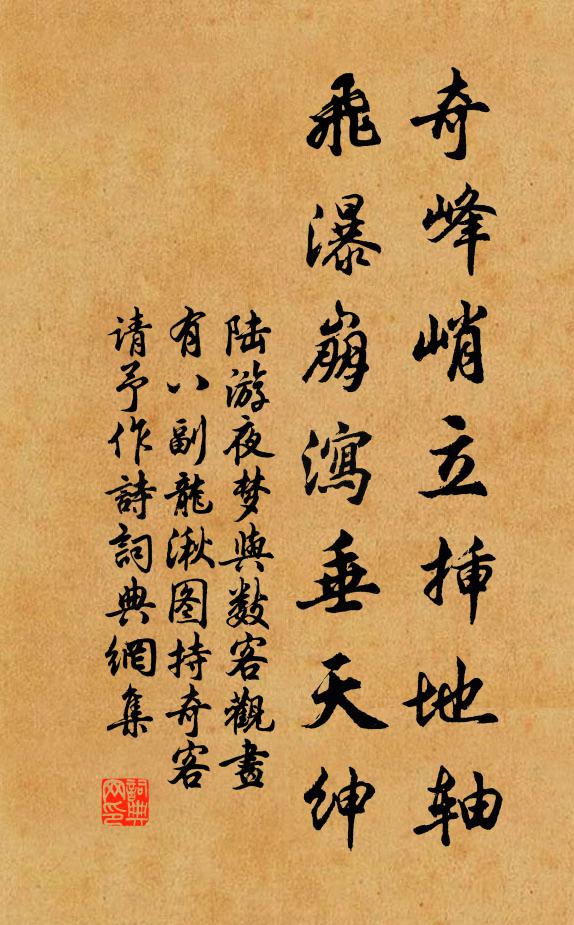 奇峰峭立插地軸
飛瀑崩瀉垂天紳
陆游夜梦與数客觀畫
有八副龍湫图持奇客
请予作詩詞典網集
詞典網印